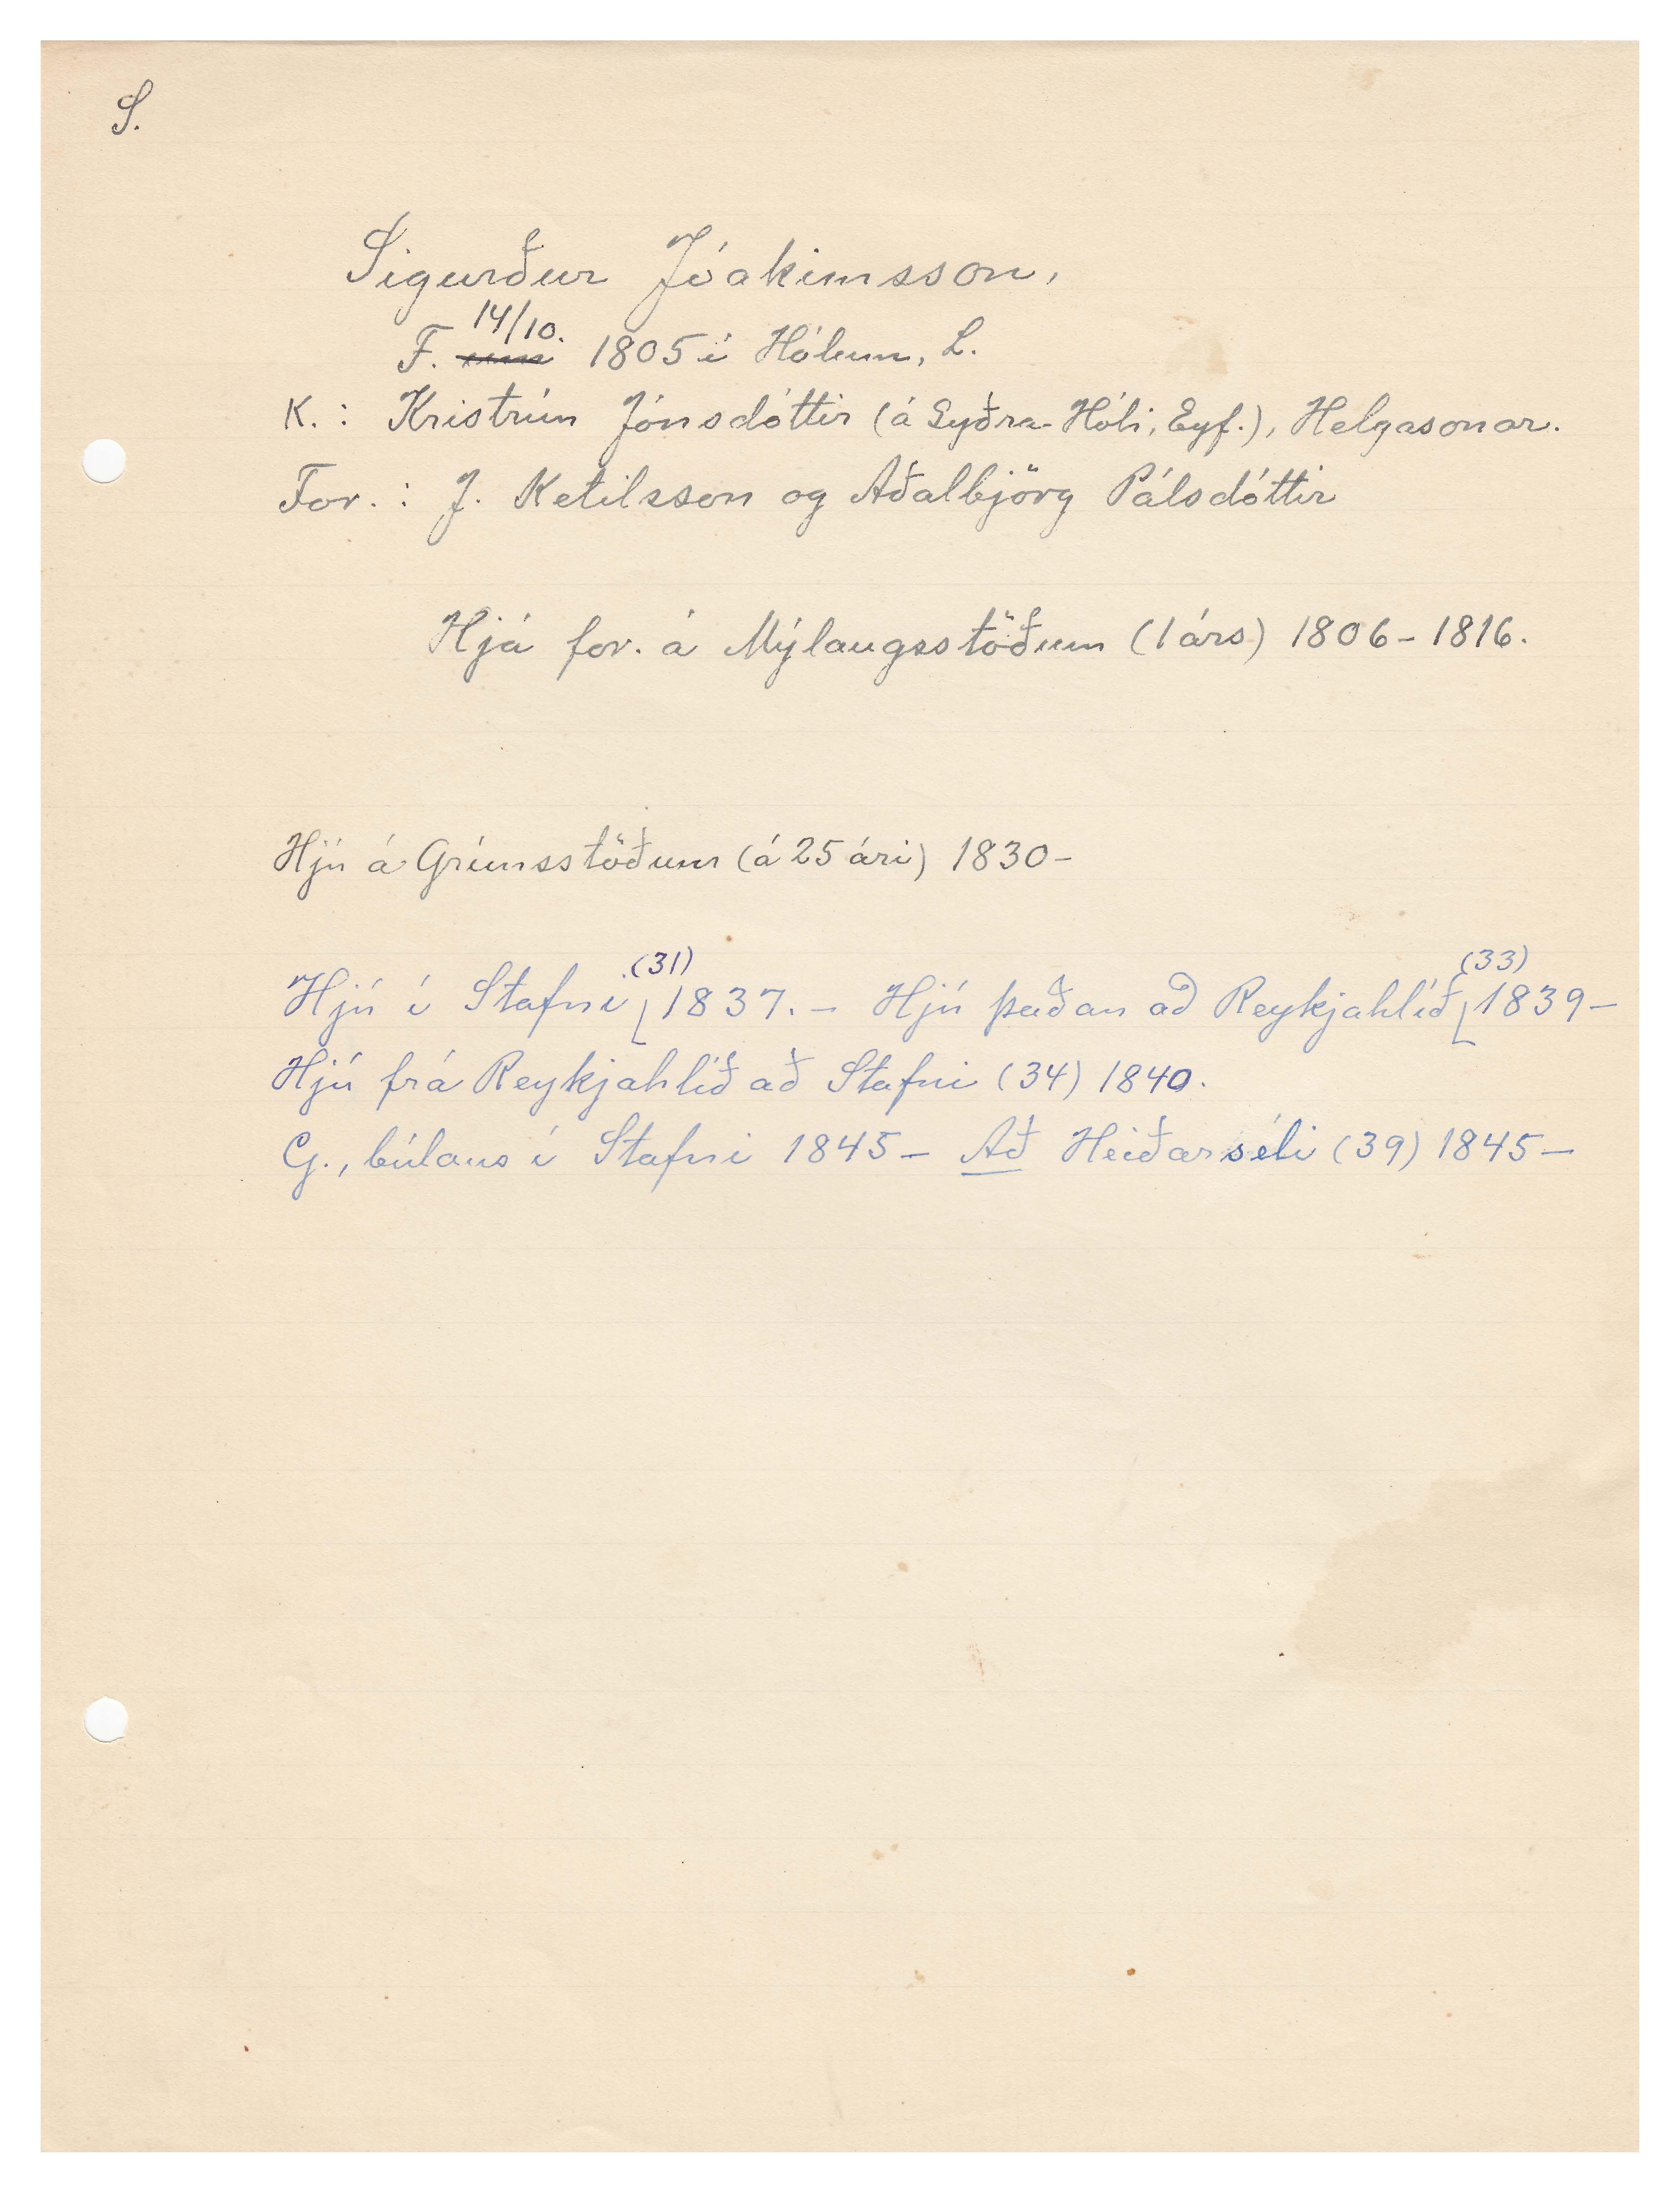 S.
Sigurður Jóakimsson,
F. 14/10. 1805 í Hólum, L.
K.: Kristrún Jónsdóttir (á Syðra-Hóli, Eyf.), Helgasonar.
For.: J. Ketilsson og Aðalbjörg Pálsdóttir
Hjá for. á Mýlaugsstöðum (1 árs) 1806-1816.
Hjú á Grímsstöðum (á 25 ári) 1830-
Hjú í Stafni (31) 1837. - Hjú þaðan að Reykjahlíð (33) 1839-
Hjú frá Reykjahlíð að Stafni (34) 1840.
G., búlaus í Stafni 1845 - Að Heiðarseli (39) 1845-